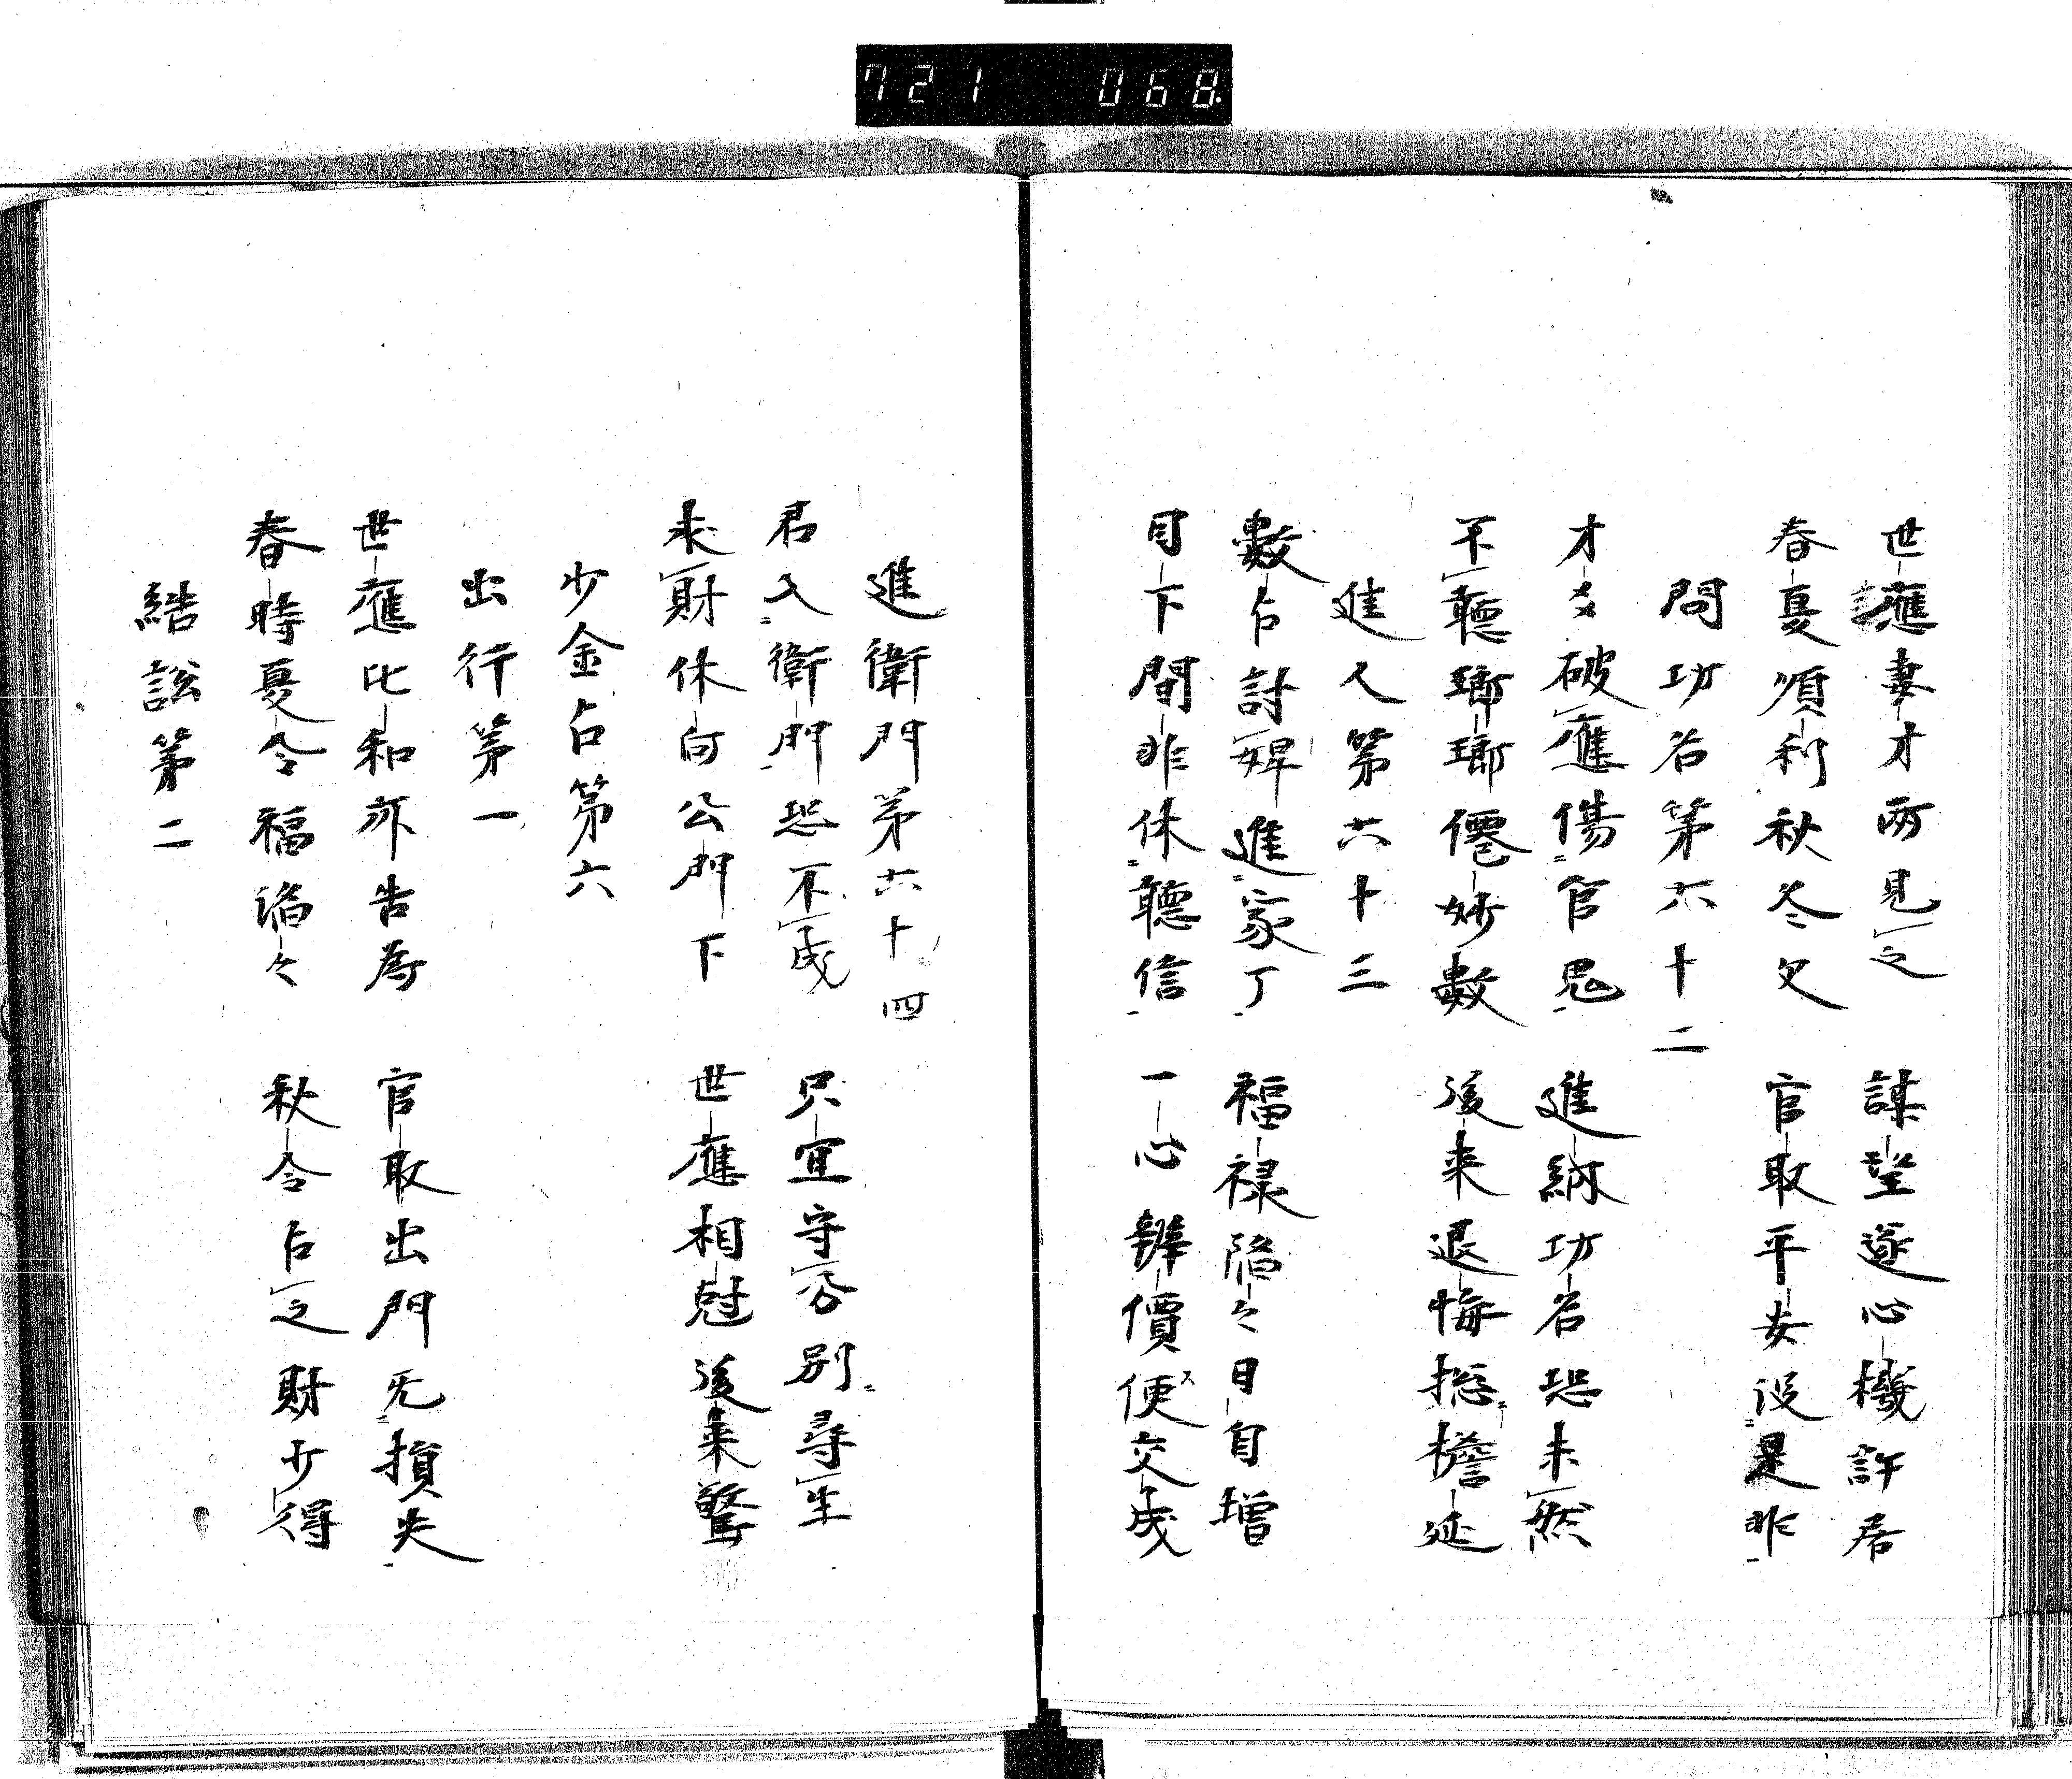 721 068
世應妻才両見之 謀望遂心機許居
春夏順利秋冬欠 官取平安没是非
問功名第六十二
才爻破應傷官鬼 進納功名恐未然
不聴瑯瑯僊妙數 後来退悔捴擔延
進人第六十三
數占討婢進家丁 福禄陷々日自增
目下間非休聴信 一心辨價便交成
進衛門第六十四
君入衛門恐不成 只宜守分別尋生
求財休向公門下 世應相尅後来驚
少金占第六
出行第一
世應比和亦告為 官取出門无損失
春時夏令福谄々 秋令占之財少得
結訟第二